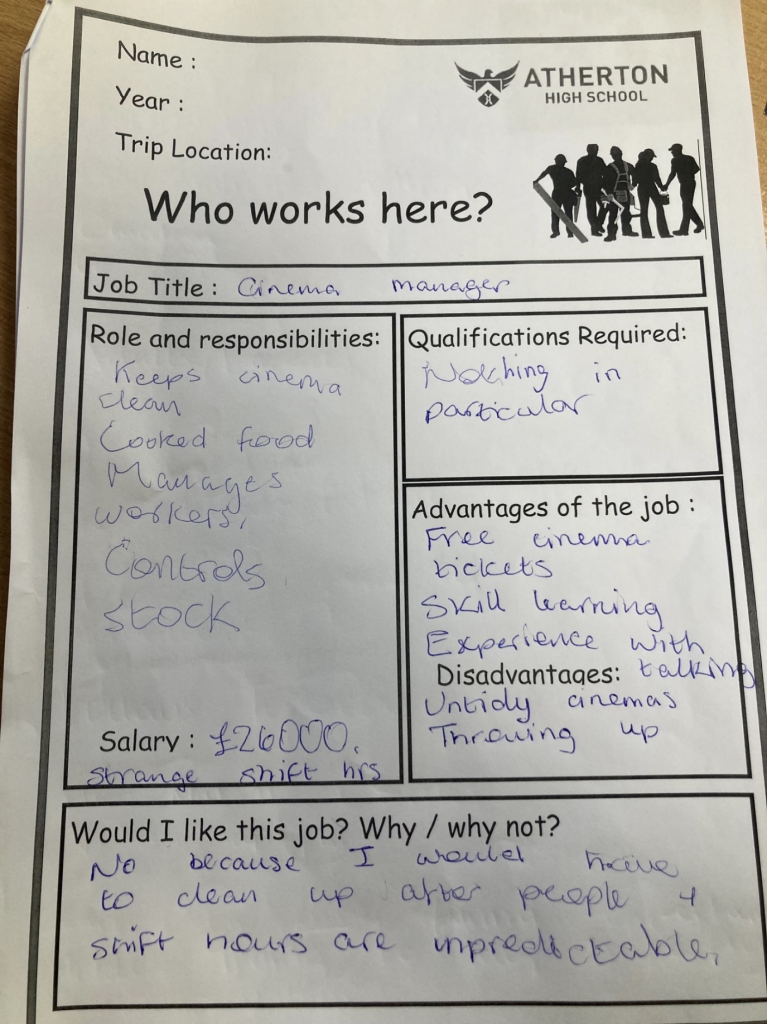 Name :
ATHERTON
HIGH SCHOOL
Year :
Trip Location:
Who works here?
Job Title : Cinema manager
Role and responsibilities:
Keeps cinema
clean
Cooked food
Manages
workers,
Controls
stock
Salary : £26000.
strange shift hrs
Qualifications Required:
Nothing in
particular
Advantages of the job :
Free cinema
tickets
Skill learning
Experience with
talking
Disadvantages:
Untidy cinemas
Throwing up
Would I like this job? Why / why not?
No because I would have
to clean up after people +
shift hours are unpredictable,